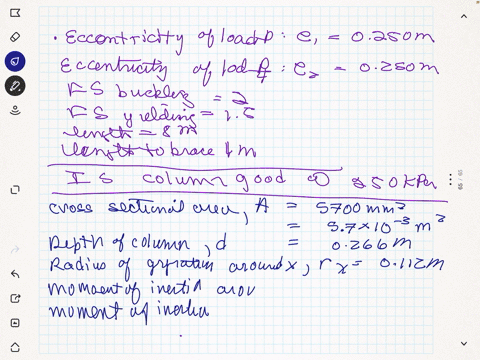 • Eccentricity of load P : e₁ = 0.250m
Eccentricity of load P/4 : e₂ = 0.250m
FS buckling = 2
FS yielding = 1.5
length = 8 m
length to brace 4m
IS column good @ 250 KPa
cross sectional area, A = 5700 mm²
= 5.7×10⁻³ m²
Depth of column, d = 0.266m
Radius of gyration around x, rₓ = 0.112m
moment of inertia arou
moment of inertia